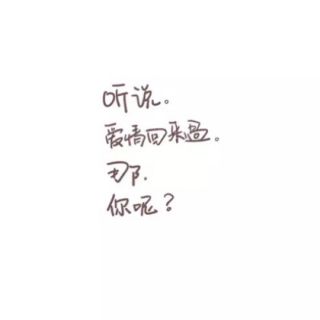 听说。
爱情回来过。
那.
你呢？